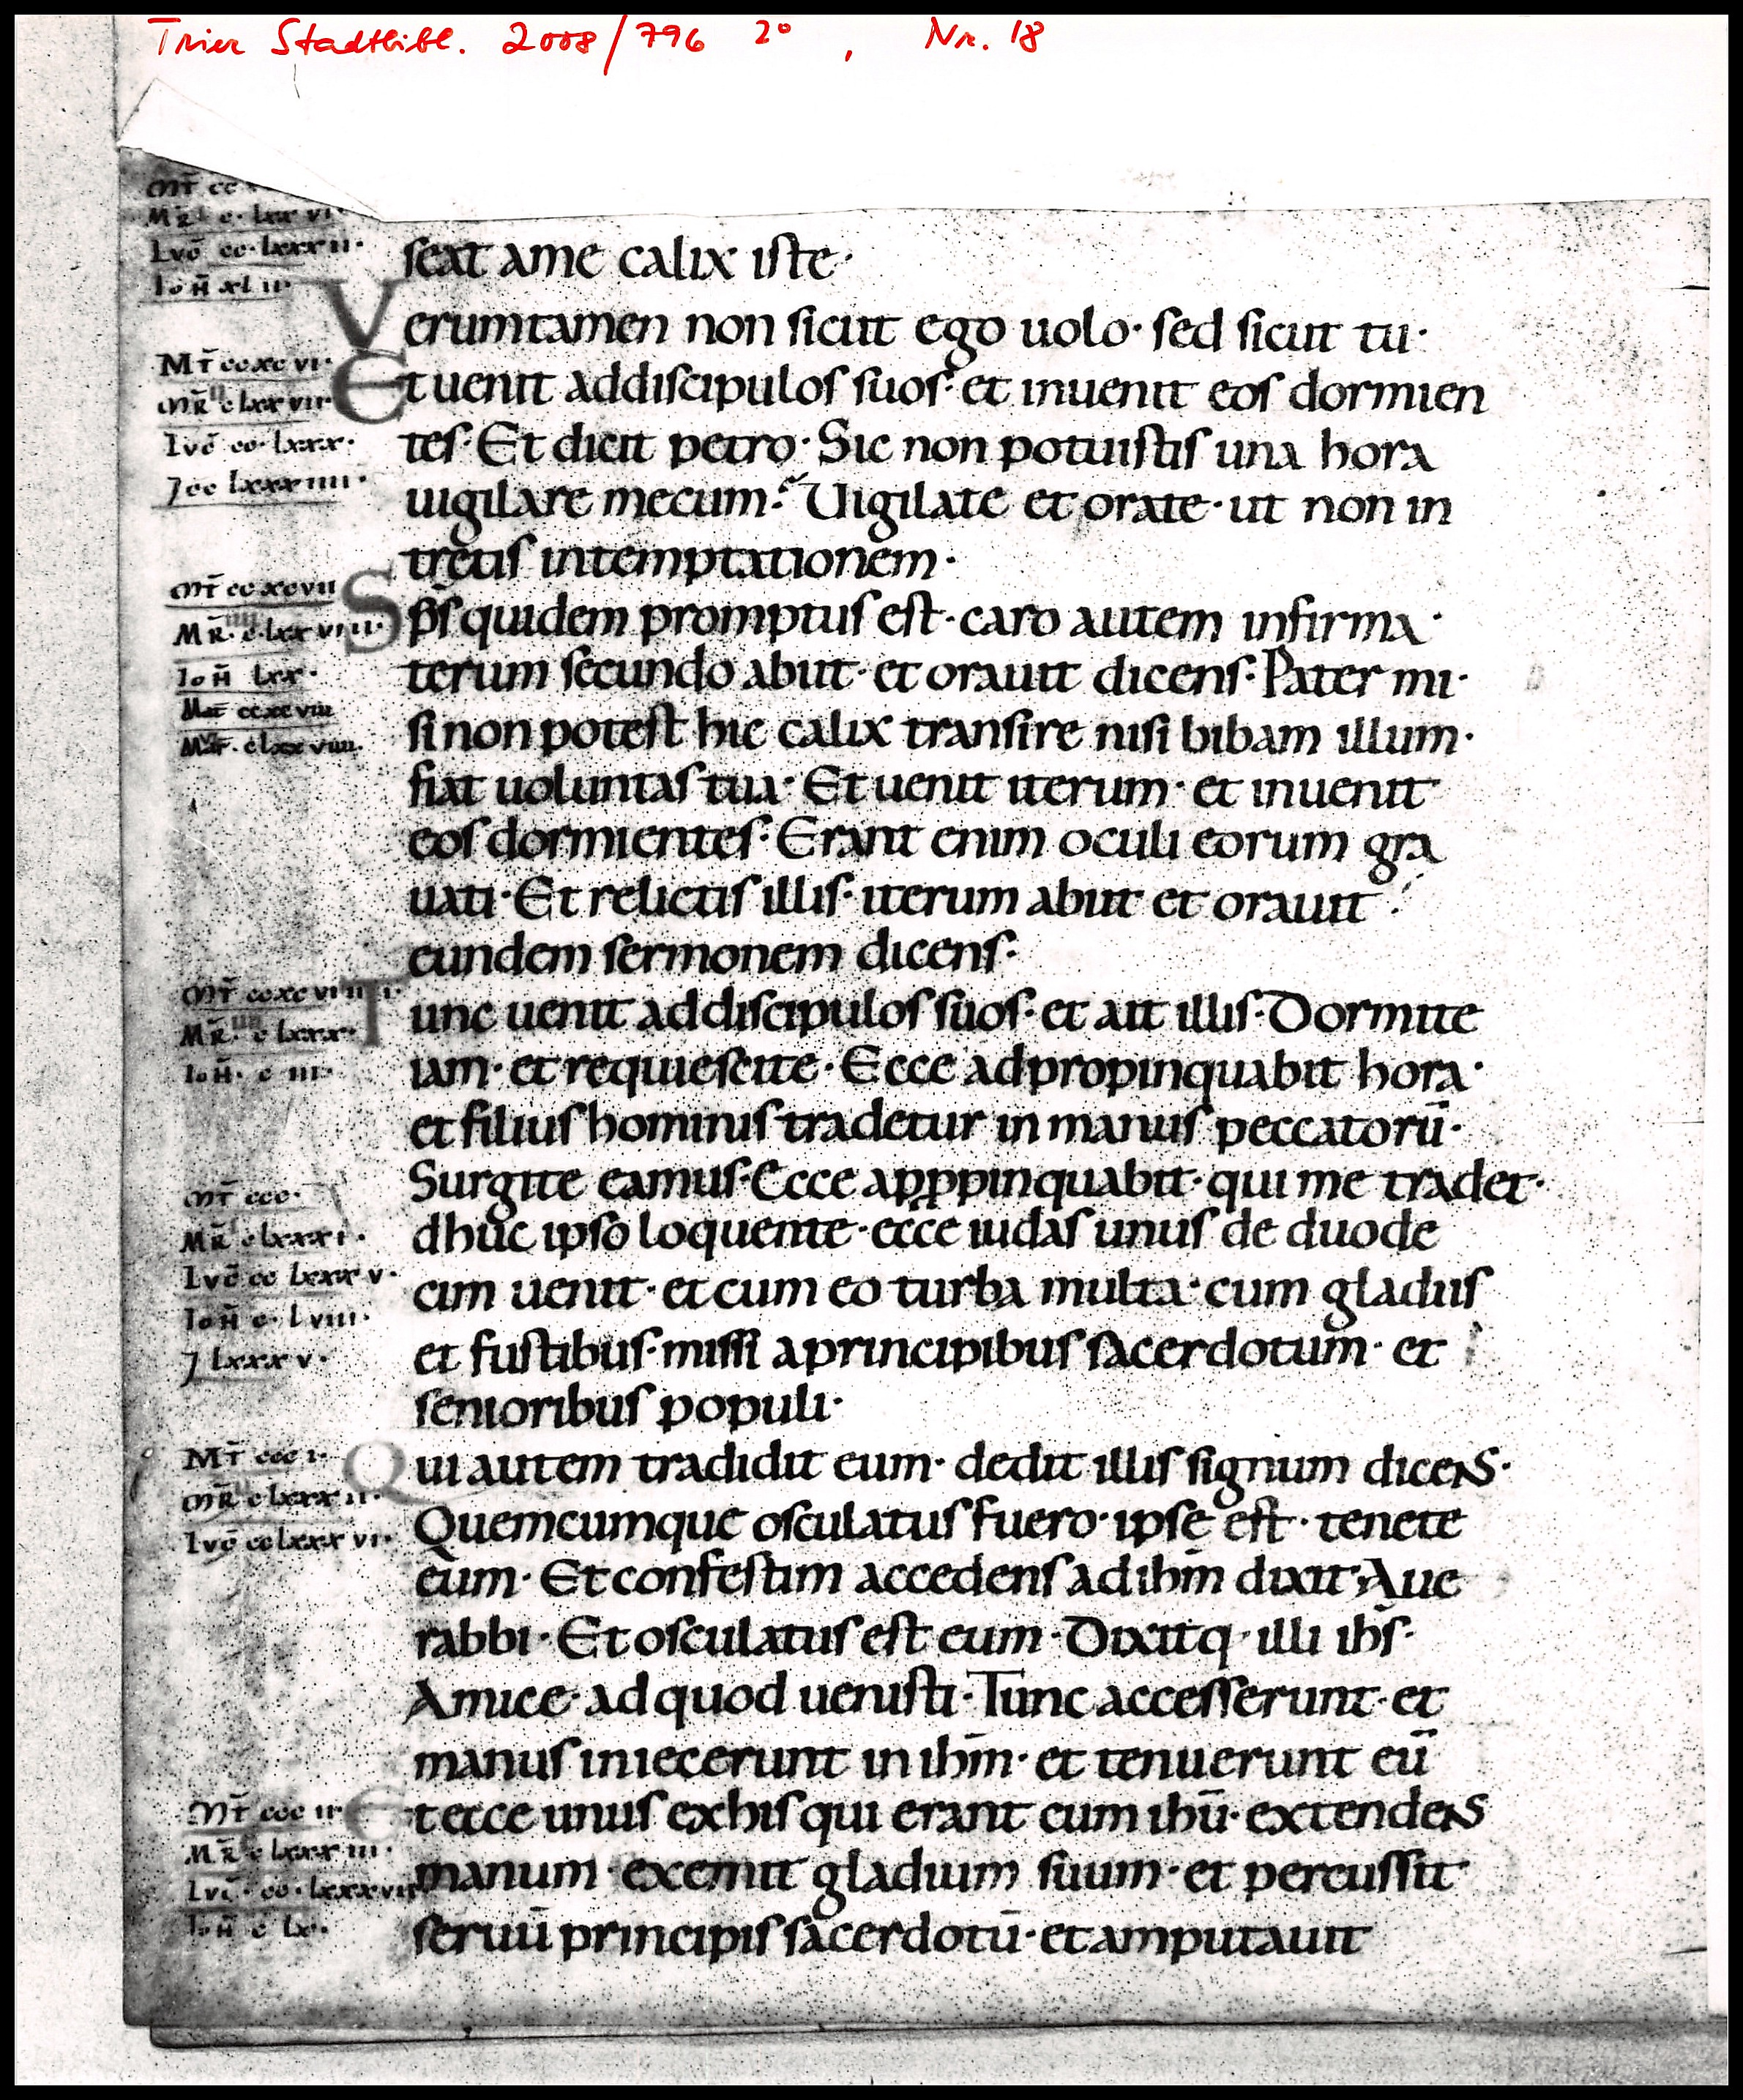 Trier Stadtbibl. 2008/796 2° , Nr. 18
Mr̄ cc
MR̄ c· lxx vi·
Lvc̄ cc· lxxxii·
Ioh̄ xl ii·
seat ame calix iste·
Verumtamen non sicut ego uolo· sed sicut tu·
Mt̄ ccxc vi·
MR̄ c lxx vii·
Lvc̄ cc· lxxx·
J cc lxxxiiii·
Et uenit addiscipulos suos· et inuenit eos dormien
tes· Et dicit petro· Sic non potuistis una hora
uigilare mecum? Uigilate et orate· ut non in
tretis intemptationem·
Mt̄ cc xcvii
MR̄· c· lxx viiii·
Ioh̄ lxx·
Mat̄ ccxcviii
Mar̄· clxxviiii·
Sp̄s quidem promptus est· caro autem infirma·
terum secundo abiit· et orauit dicens· Pater mi·
si non potest hic calix transire nisi bibam illum·
fiat uoluntas tua· Et uenit iterum· et inuenit
eos dormientes· Erant enim oculi eorum gra
uati· Et relictis illis· iterum abiit et orauit·
eundem sermonem dicens·
Mt̄ ccxc viiii·
MR̄· c lxxx·
Ioh̄· c iii·
Tunc uenit addiscipulos suos· et ait illis· Dormite
iam· et requiescite· Ecce adpropinquabit hora·
et filius hominis tradetur in manus peccatorū·
Surgite eamus· Ecce apꝓpinquabit· qui me tradet·
Mt̄ ccc·
MR̄ c lxxxi·
Lvc̄ cc lxxx v·
Ioh̄ c· lviii·
J lxxx v·
dhuc ipso loquente· ecce iudas unus de duode
cim uenit· et cum eo turba multa· cum gladiis
et fustibus· missi aprincipibus sacerdotum· et
senioribus populi·
Mt̄ ccc i·
MR̄ c lxxx ii·
Lvc̄ cc lxxx vi·
Qui autem tradidit eum· dedit illis signum dicens·
Quemcumque osculatus fuero· ipse est· tenete
eum· Et confestim accedens ad ihm̄ dixit· Aue
rabbi· Et osculatus est eum· Dixitq· illi ihs̄·
Amice· ad quod uenisti· Tunc accesserunt· et
manus iniecerunt in ihm̄· et tenuerunt eū
Mt̄ ccc ii·
MR̄ c lxxx iii·
Lvc̄· cc· lxxxvii
Ioh̄ c lx·
Et ecce unus exhis qui erant cum ihū· extendens
manum· exemit gladium suum· et percussit
seruū principis sacerdotū· et amputauit